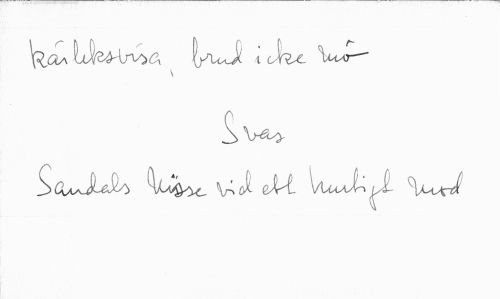 kärleksvisa, brud icke mö
Svar
Sandels Nisse vid ett hurtigt mod